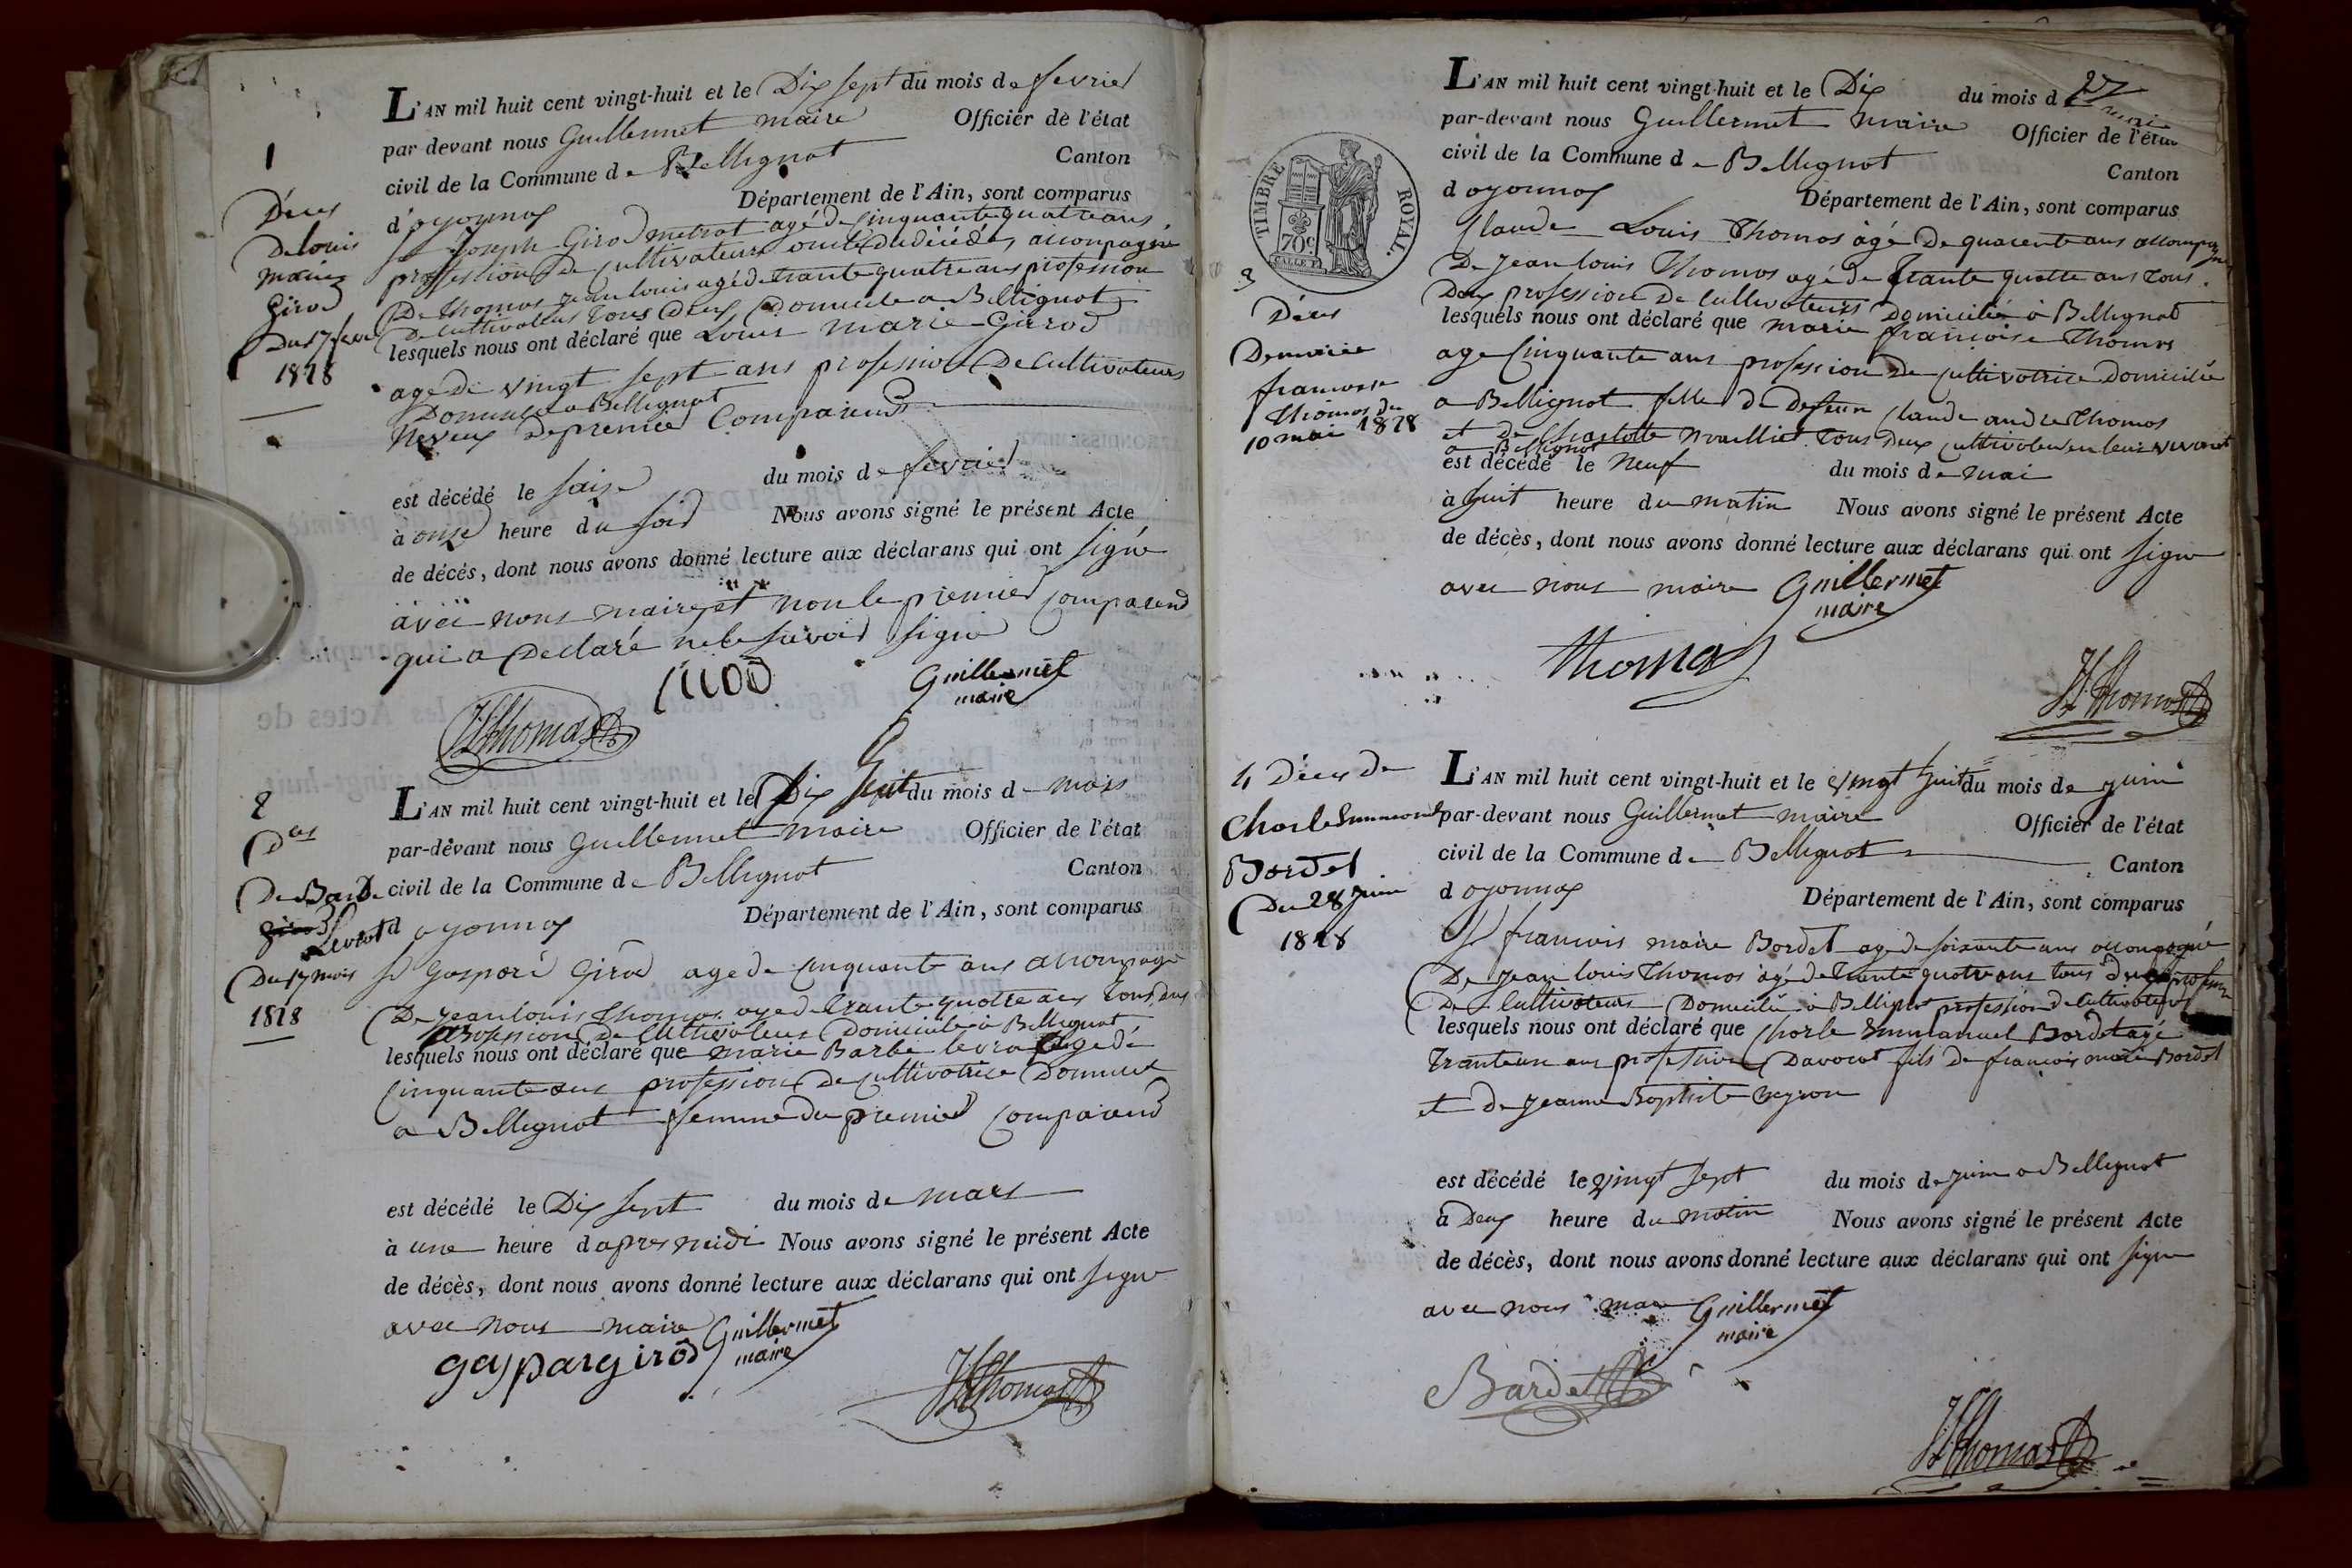 1
Déces
De Louis
marie
Girod
Du 17 fevr
1828
L'AN mil huit cent vingt-huit et le Dix sept du mois de fevrier
par devant nous Guillermet maire Officier de l'état
civil de la Commune de Bellignat Canton
d'oyonnax Département de l'Ain, sont comparus
Sr Joseph Girod metrat agé de Cinquante quatre ans
profession de Cultivateur oncle du décédé, accompagné
De Thomas Jean louis agé de trante quatre ans profession
De Cultivateur tous deux Domicile a Bellignat
lesquels nous ont déclaré que Louis marie Girod
agé de vingt sept ans profession De Cultivateurs
Domicile a Bellignat
Neveux de premier Comparend
est décédé le saise du mois de fevrier
à onse heure du soir Nous avons signé le présent Acte
de décés, dont nous avons donné lecture aux déclarans qui ont signé
avec nous maire et non le premier comparend
qui a Declaré ne le savoir signé
Girod Guillermet
maire
JLThomas
2
Des
De Barbe
girod
Levrat
Du 17 mars
1828
L'AN mil huit cent vingt-huit et le Dix huit du mois de mars
par-devant nous Guillermet maire Officier de l'état
civil de la Commune de Bellignat Canton
d oyonnax Département de l'Ain, sont comparus
Sr Gaspard Girod age de Cinquante ans accompagné
De Jean louis Thomas age de trante quatre ans tous deux
profession De Cultivateur Domicile a Bellignat
lesquels nous ont déclaré que marie Barbe levrat age de
Cinquante ans profession de cultivatrice Domicile
a Bellignat femme du premier Comparend
est décédé le Dix sept du mois de mars
à une heure d apres midi Nous avons signé le présent Acte
de décès, dont nous avons donné lecture aux déclarans qui ont signe
avec nous maire Guillermet
maire
gaspar girod
JLThomas
27
TIMBRE ROYAL
70c
3
Déces
De marie
francoise
Thomas du
10 mai 1828
L'AN mil huit cent vingt-huit et le Dix du mois d mai
par-devant nous Guillermet maire Officier de l'état
civil de la Commune de Bellignat Canton
d oyonnax Département de l'Ain, sont comparus
Claude Louis Thomas àgé De quarente ans accompagné
De Jean louis Thomas agé de trante quatre ans tous
Deux profession De Cultivateurs Domicilié à Bellignat
lesquels nous ont déclaré que marie francoise Thomas
age Cinquante ans profession De cultivatrice Domicilie
a Bellignat fille de defeun Claude andre Thomas
et de Charlotte Mailliet tous deux cultivateur en leur vivant
a Bellignat
est décédé le Neuf du mois de mai
à huit heure du matin Nous avons signé le présent Acte
de décès, dont nous avons donné lecture aux déclarans qui ont signe
avec nous maire Guillermet
maire
Thomas
JLThomas
4 Déces de
Charle Emmanuel
Bordet
Du 28 Juin
1828
L'AN mil huit cent vingt-huit et le vingt huit du mois de Juin
par-devant nous Guillermet maire Officier de l'état
civil de la Commune de Bellignat Canton
d oyonnax Département de l'Ain, sont comparus
Sr francois marie Bordet age de soixante ans accompagné
De Jean louis Thomas àgé de trante quatre ans tous deux profession
De Cultivateurs Domicilie a Bellignat profession de Cultivateur
lesquels nous ont déclaré que Charle Emmanuel Bordet age
trante un ans profession Davocat fils De francois marie Bordet
et de Jeanne Baptiste
est décédé le vingt sept du mois de Juin a Bellignat
à Deux heure du matin Nous avons signé le présent Acte
de décès, dont nous avons donné lecture aux déclarans qui ont signe
avec nous maire Guillermet
maire
Bardet
JLThomas